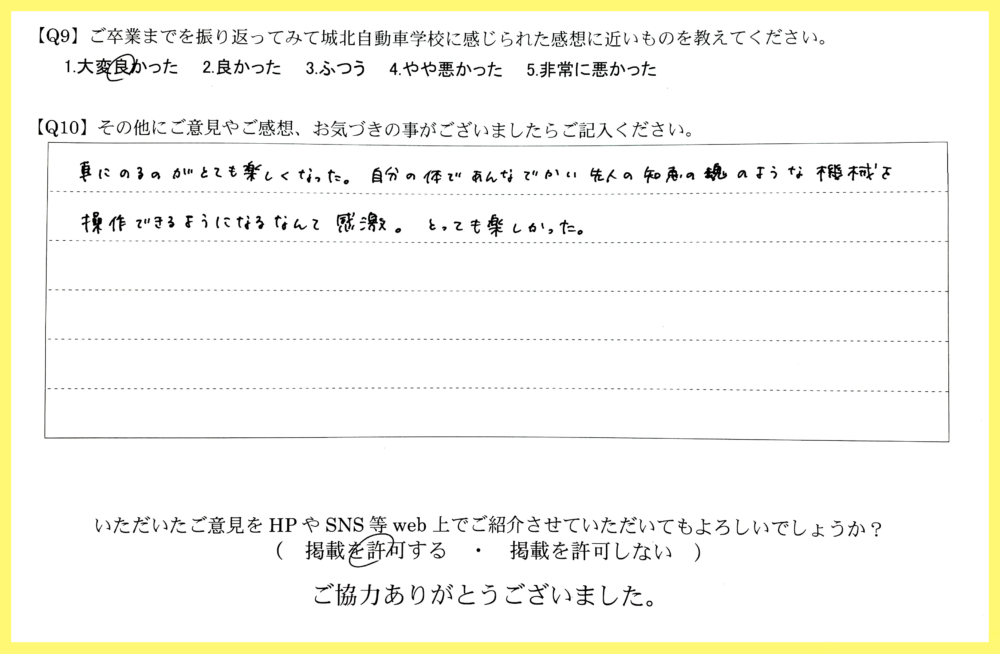 【Q9】ご卒業までを振り返ってみて城北自動車学校に感じられた感想に近いものを教えてください。
1.大変良かった 2.良かった 3.ふつう 4.やや悪かった 5.非常に悪かった
【Q10】その他にご意見やご感想、お気づきの事がございましたらご記入ください。
車にのるのがとても楽しくなった。自分の体であんなでかい先人の知恵の塊のような機械を
操作できるようになるなんて感激。とっても楽しかった。
いただいたご意見をHPやSNS等web上でご紹介させていただいてもよろしいでしょうか？
（ 掲載を許可する ・ 掲載を許可しない ）
ご協力ありがとうございました。